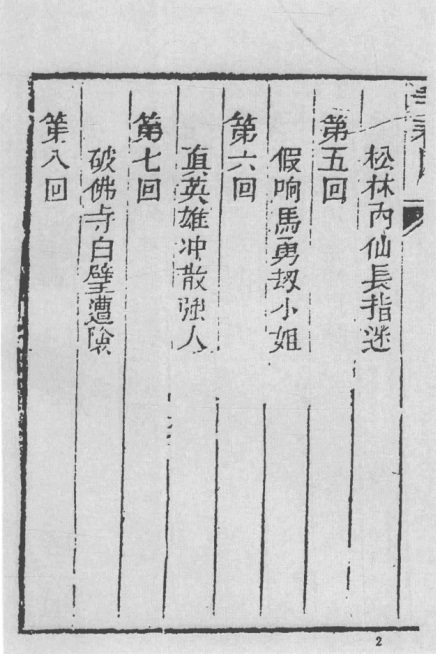 松林內仙長指迷
第五回
假响馬勇刼小姐
第六回
眞英雄冲散強人
第七回
破佛寺白璧遭險
第八回
2